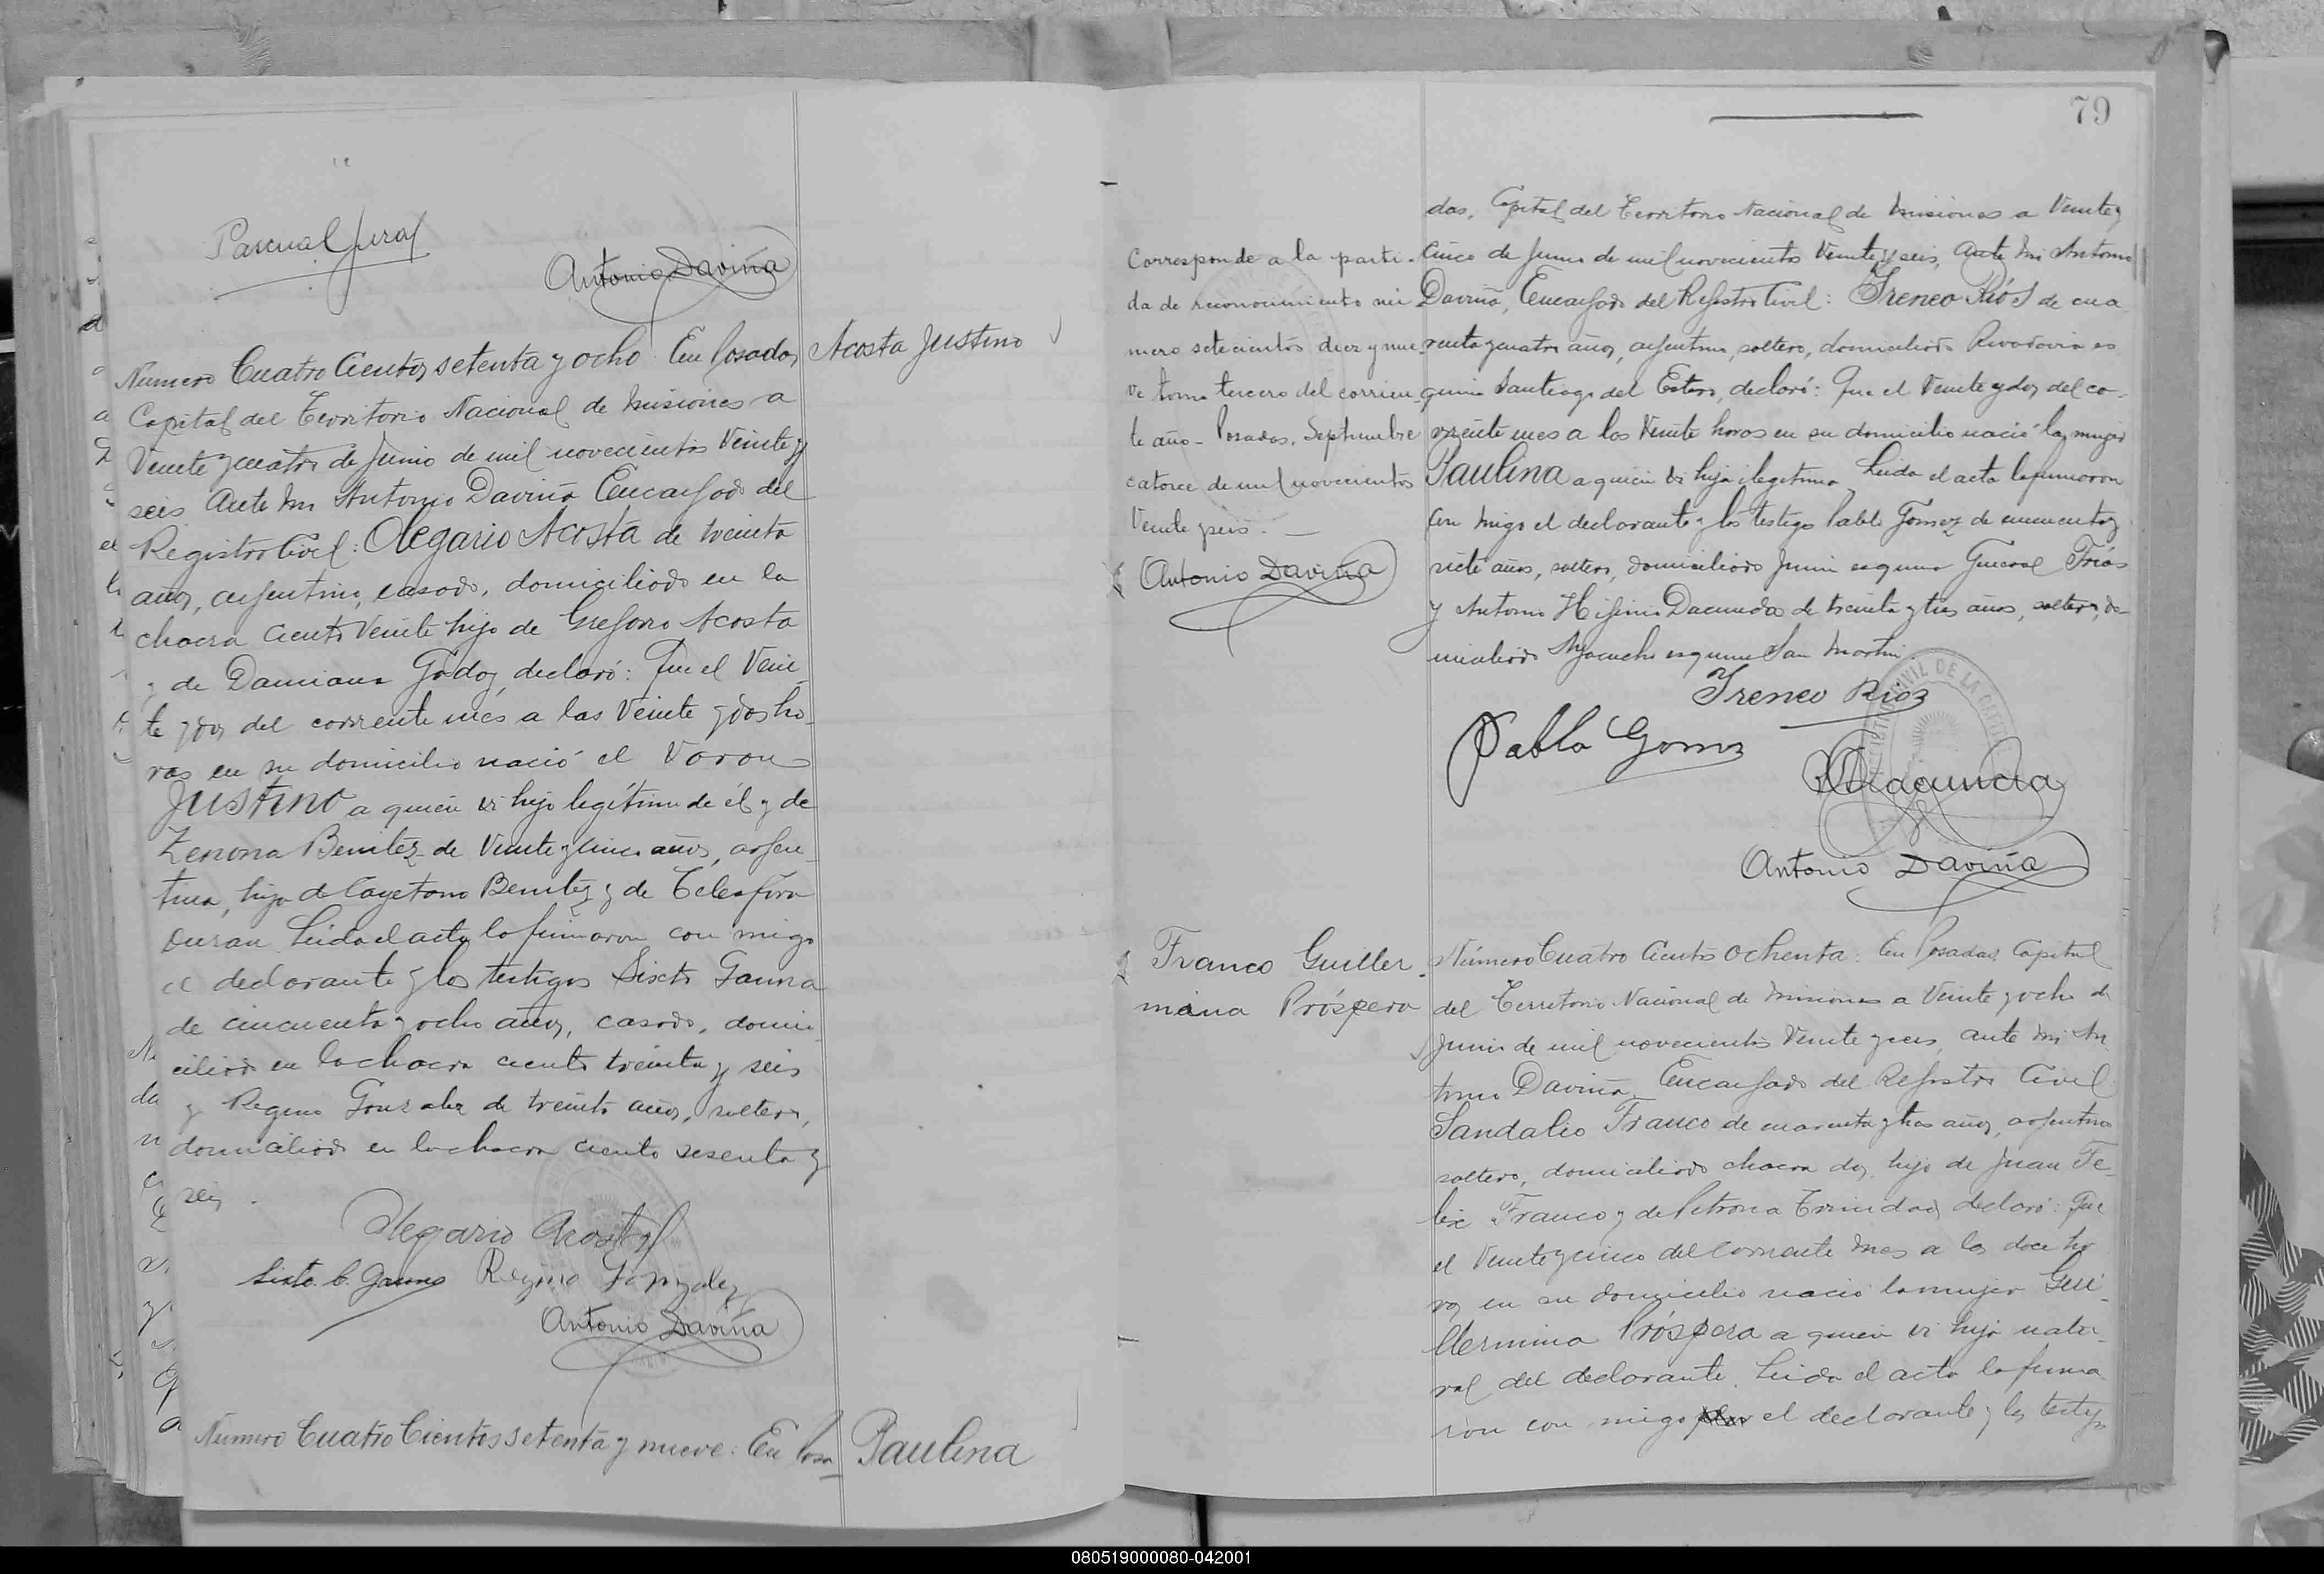 Pascual Jural
Antonio Daviña
Número Cuatro Cientos setenta y ocho. En Posadas
Acosta Justino
Capital del Territorio Nacional de Misiones a
Veinte y cuatro de Junio de mil novecientos Veinte y
seis. Ante mi Antonio Daviña Encargado del
Registro Civil: Olegario Acosta de treinta
años, argentino, casado, domiciliado en la
chacra Ciento Veinte hijo de Gregorio Acosta
y de Damiana Godoy, declaró: Que el Vein
te y dos del corriente mes a las Veinte y dos ho-
ras en su domicilio nació el Varon
Justino a quien vi hijo legítimo de él y de
Zenona Benitez de Veinte y cinco años, argen-
tina, hija de Cayetano Benitez y de Telesfora
Duran. Leida el acta la firmaron con migo
el declarante y los testigos Sixto Gauna
de cincuenta y ocho años, casado, domi-
ciliado en la chacra ciento treinta y seis
y Regino Gonzalez de treinta años, soltero,
domiciliado en la chacra ciento sesenta y
seis.
Olegario Acosta
Sixto C. Gauna Regino Gonzalez
Antonio Daviña
Número Cuatro Cientos setenta y nueve: En Posa-
Paulina
79
das, Capital del Territorio Nacional de Misiones a Veinte y
cinco de Junio de mil novecientos Veinte y seis, Ante mi Antonio
Daviña, Encargado del Registro Civil: Ireneo Ríos de cua
renta y cuatro años, argentino, soltero, domiciliado Rivadavia es
quina Santiago del Estero, declaró: Que el Veinte y dos del co-
rriente mes a las Veinte horas en su domicilio nació la mujer
Paulina a quien vi hija ilegitima. Leida el acta la firmaron
con migo el declarante y los testigos Pablo Gomez de cincuenta y
siete años, soltero, domiciliado Junin esquina General Frías
y Antonio Higinio Dacunda de treinta y tres años, soltero, do-
miciliado Ayacucho esquina San Martin.
Corresponde a la parti-
da de reconocimiento nú
mero setecientos diez y nue-
ve tomo tercero del corrien-
te año - Posadas, Septiembre
catorce de mil novecientos
Veinte y seis. —
Antonio Daviña
Ireneo Rios
Pablo Gomez
Dacunda
Antonio Daviña
Franco Guiller-
mina Próspera
Número Cuatro Cientos Ochenta: En Posadas Capital
del Territorio Nacional de Misiones a Veinte y ocho de
Junio de mil novecientos Veinte y seis, ante mi An
tonio Daviña, Encargado del Registro Civil
Sandalio Franco de cuarenta y tres años, argentino
soltero, domiciliado chacra dos, hijo de Juan Fe-
lix Franco y de Petrona Trinidad, declaró: Que
el Veinte y cinco del corriente mes a las doce ho
ras en su domicilio nació la mujer Gui-
llermina Próspera a quien vi hija natu-
ral del declarante. Leida el acta la firma
ron con migo el declarante y los testigos
080519000080-042001